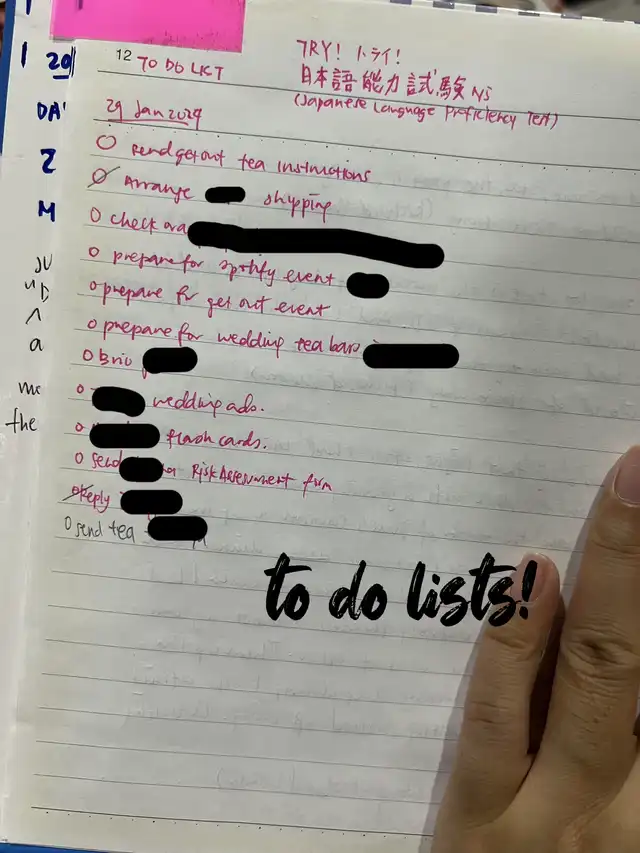 12 TO DO LIST
TRY! トライ!
日本語能力試験 N5
(Japanese Language Proficiency Test)
29 Jan 2024
O Send get out tea instructions
O Arrange shipping
O check
O prepare for spotify event
O prepare for get out event
O prepare for wedding tea bars
O Briu
O wedding ads.
O flash cards.
O send Risk Assessment form
O Reply
O send tea
to do lists!
20
DA
2
M
me
the